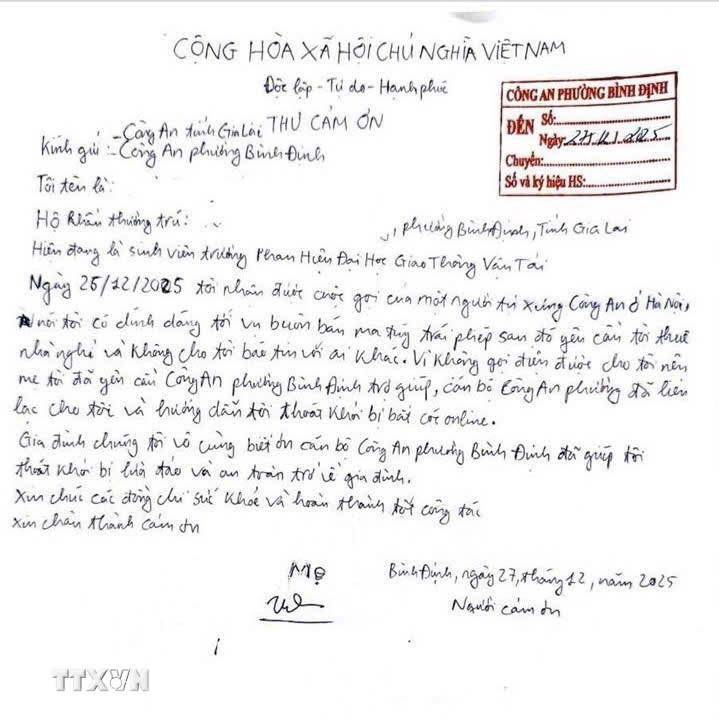 CỘNG HÒA XÃ HỘI CHỦ NGHĨA VIỆT NAM
Độc lập - Tự do - Hạnh phúc
CÔNG AN PHƯỜNG BÌNH ĐỊNH
ĐẾN Số:
Ngày: 27/12/2025
Chuyển:
Số và ký hiệu HS:
THƯ CẢM ƠN
Kính gửi: - Công An tỉnh Gia Lai
- Công An phường Bình Định
Tôi tên là:
Hộ khẩu thường trú: , phường Bình Định, Tỉnh Gia Lai
Hiện đang là sinh viên trường Phân Hiệu Đại Học Giao Thông Vận Tải
Ngày 25/12/2025 tôi nhận được cuộc gọi của một người tự xưng Công An ở Hà Nội,
nói tôi có dính dáng tới vụ buôn bán ma túy trái phép sau đó yêu cầu tôi thuê
nhà nghỉ và không cho tôi báo tin với ai khác. Vì không gọi điện được cho tôi nên
mẹ tôi đã yêu cầu Công An phường Bình Định trợ giúp, cán bộ Công An phường đã liên
lạc cho tôi và hướng dẫn tôi thoát khỏi bị bắt cóc online.
Gia đình chúng tôi vô cùng biết ơn cán bộ Công An phường Bình Định đã giúp tôi
thoát khỏi bị lừa đảo và an toàn trở về gia đình.
Xin chúc các đồng chí sức khỏe và hoàn thành tốt công tác
Xin chân thành cảm ơn
Bình Định, ngày 27, tháng 12, năm 2025
Mẹ
Người cảm ơn
TTXVN